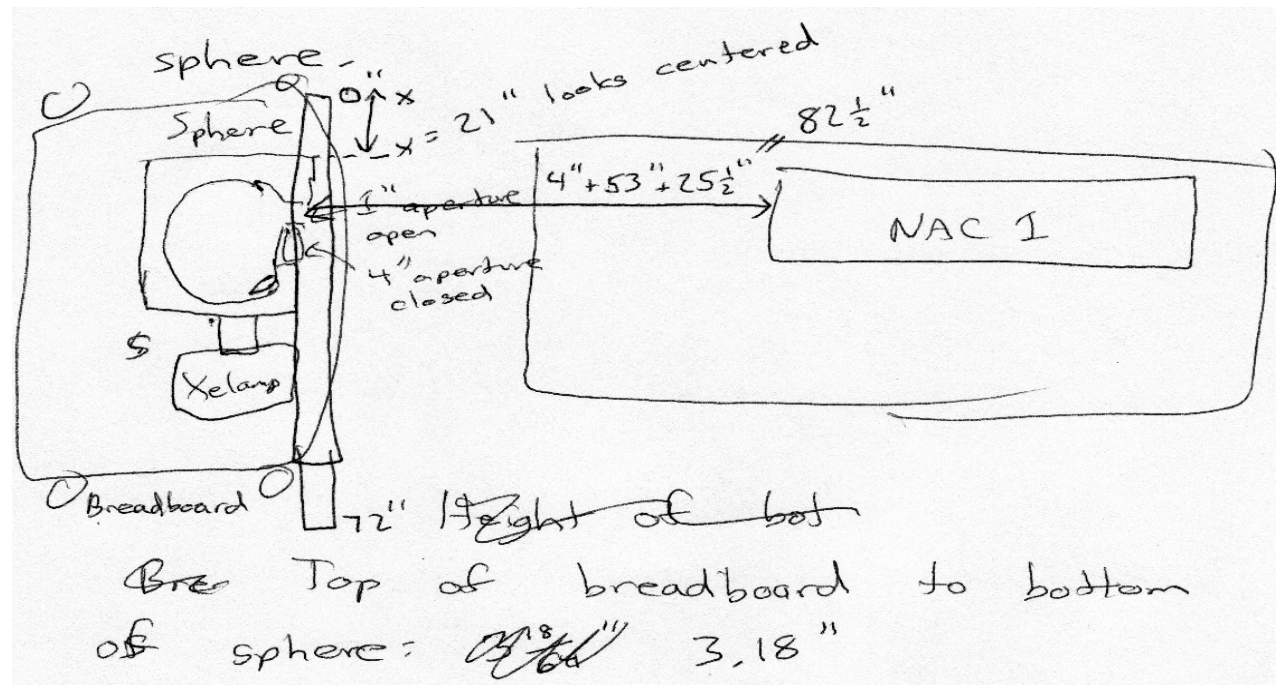 sphere -
0" x
x = 21" looks centered
82 1/2"
Sphere
4" + 53" + 25 1/2"
1" aperture
open
NAC I
4" aperture
closed
$
Xe lamp
Breadboard
72" Height of bot
Bre Top of breadboard to bottom
of sphere: 3.18"